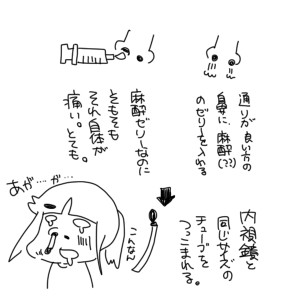 通りが良い方の
鼻に、麻酔(??)
のゼリーを入れる
麻酔ゼリーなのに
そもそも
それ自体が
痛い。とても。
内視鏡と
同じサイズの
チューブを
つっこまれる。
こんなん
あが……が…